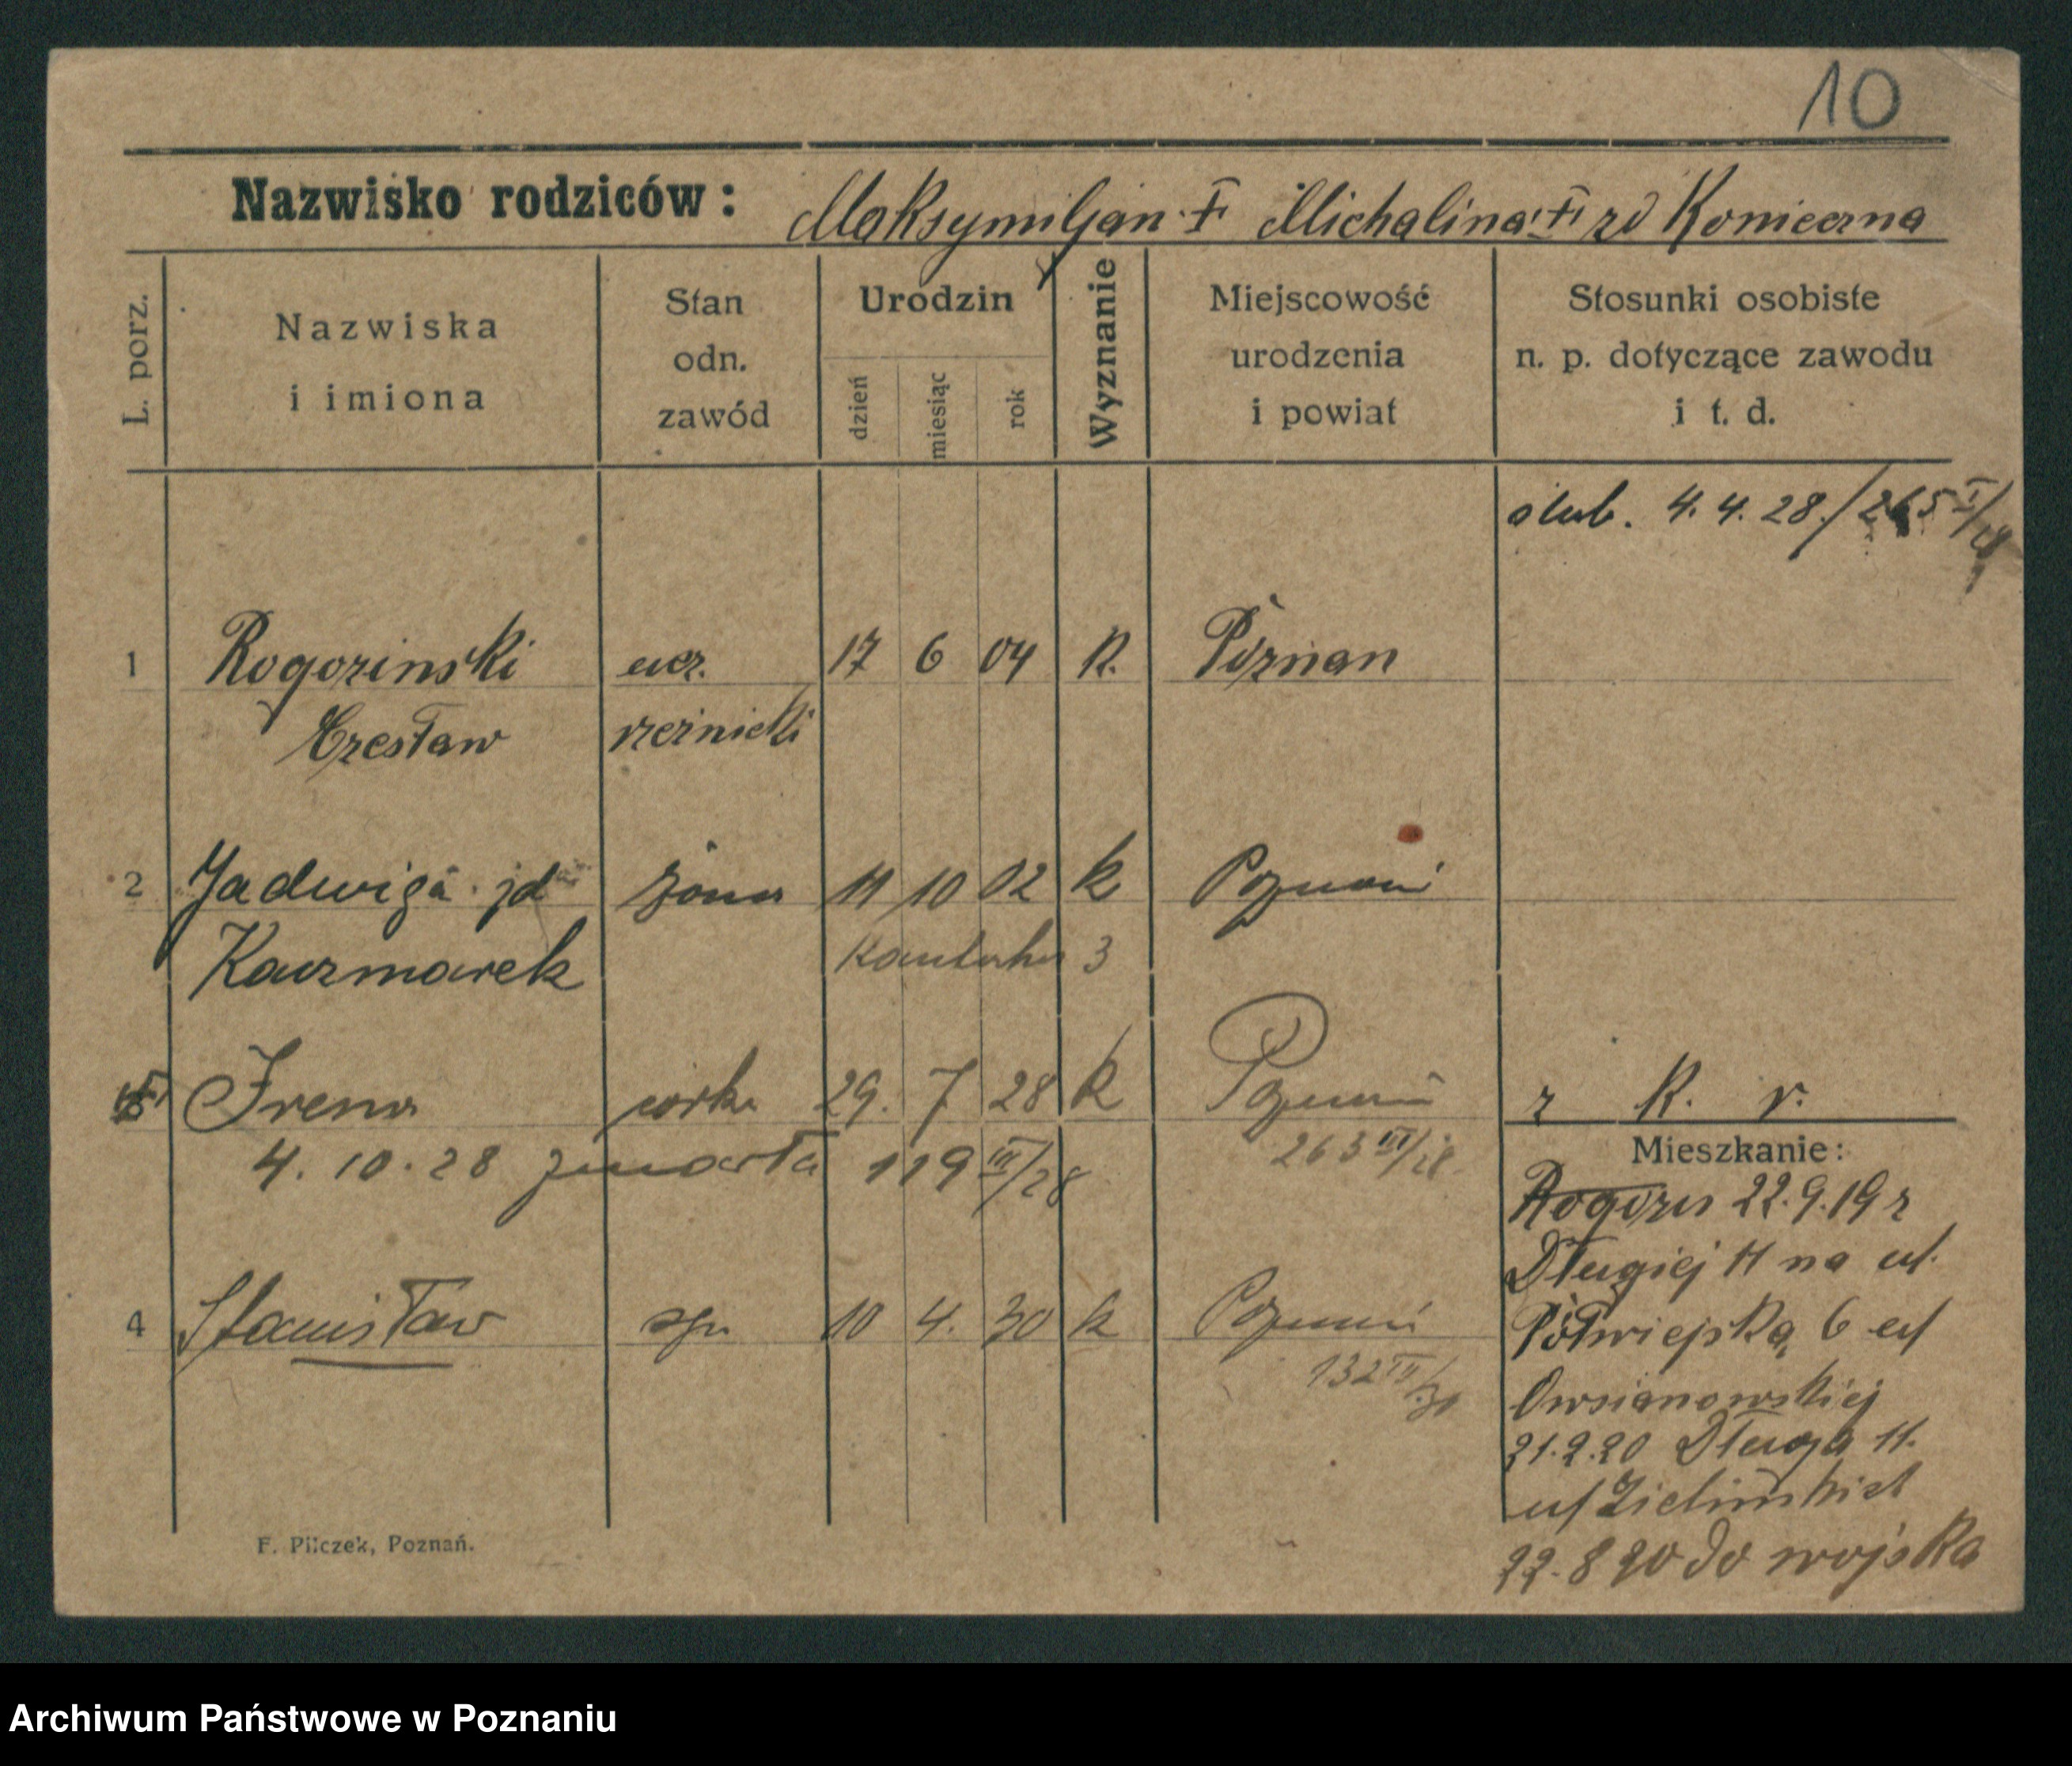 10
Nazwisko rodziców: Maksymiljan Michalina zd Konieczna
L. porz.
Nazwiska i imiona
Stan odn. zawód
Urodzin
dzień
miesiąc
rok
Wyznanie
Miejscowość urodzenia i powiat
Stosunki osobiste n. p. dotyczące zawodu i t. d.
ślub. 4.4.28./265 I/28
1 Rogozinski ucz. 17 6 04 R. Poznan
Czesław rzeźnicki
2 Jadwiga żona 11 10 02 k Poznań
Kaczmarek 3
Irena córka 29. 7 28 k Poznań r. k. v.
263 III/28
4. 10. 28 zmarła 119 III/28
Mieszkanie:
22.9.19 r
Długiej 11 na ul.
4 Stanisław syn 10 4. 30 k Poznań
Półwiejska 6 u
132 IV/30
Owsianowskiej
21.2.20 Długa 11.
u Zielińskich
22.8 20 do wojska
F. Pilczek, Poznań.
Archiwum Państwowe w Poznaniu